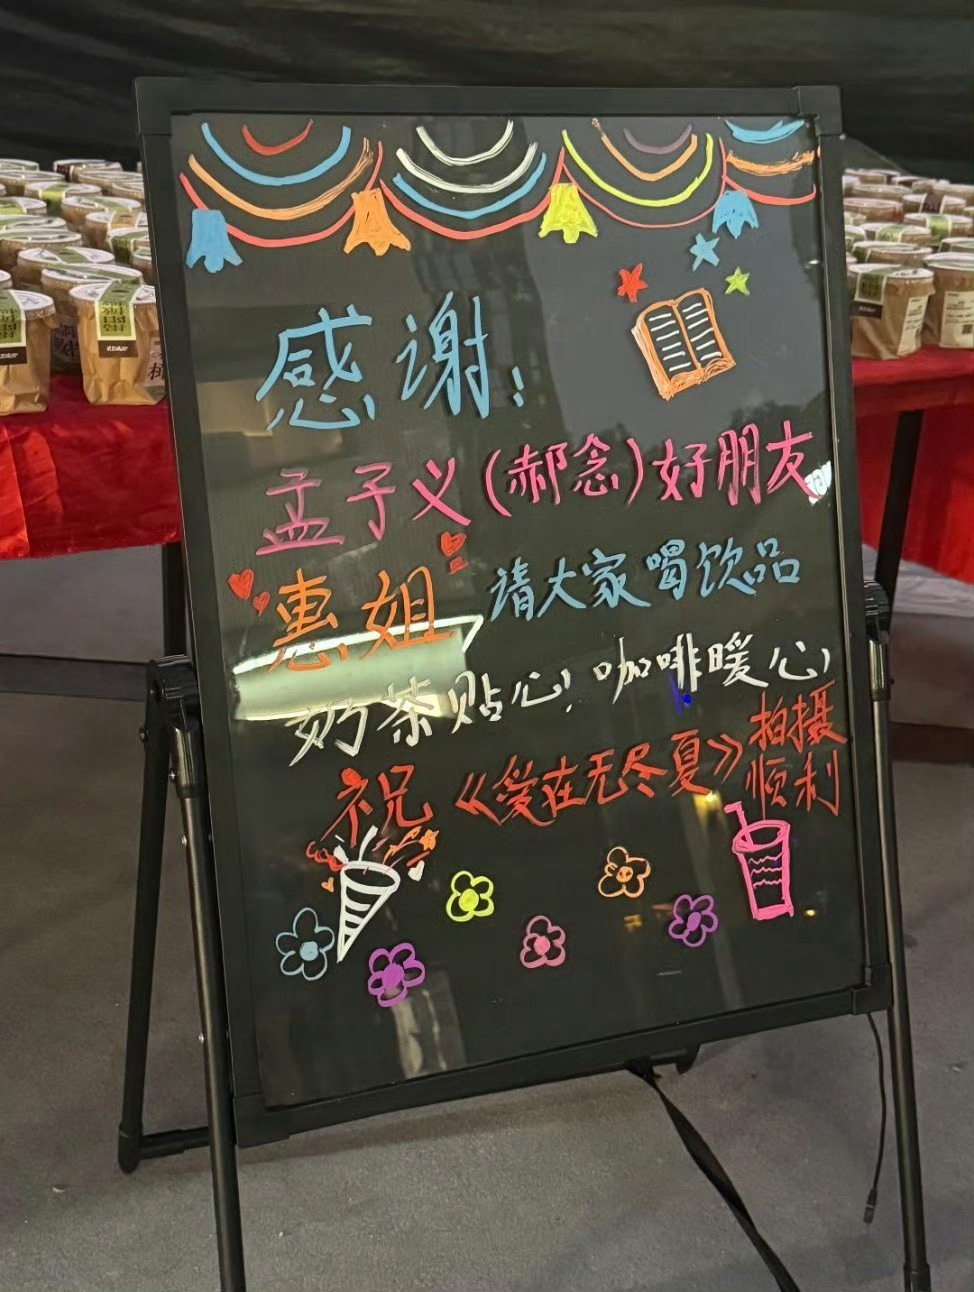 感谢：
孟子义(郝念)好朋友
惠姐 请大家喝饮品
奶茶贴心！咖啡暖心！
祝《爱在无尽夏》拍摄
顺利